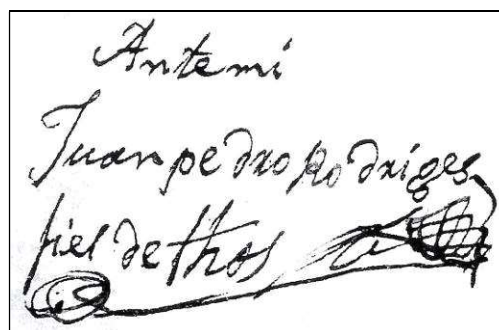 Antemi
Juanpedro Rodriges
fiel de fhos